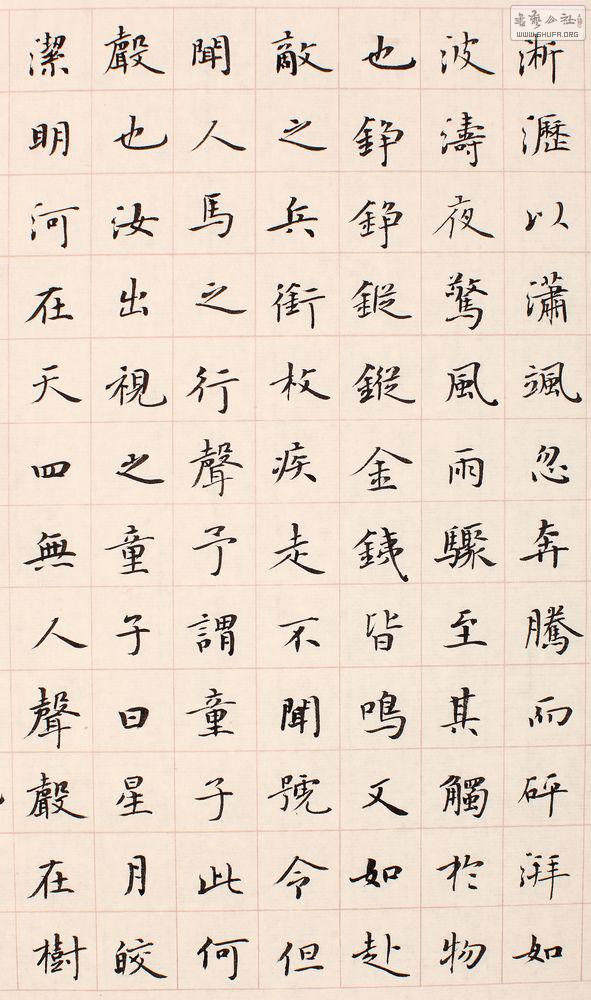 淅瀝以瀟颯忽奔騰而砰湃如
波濤夜驚風雨驟至其觸於物
也錚錚鏦鏦金鐵皆鳴又如赴
敵之兵銜枚疾走不聞號令但
聞人馬之行聲予謂童子此何
聲也汝出視之童子曰星月皎
潔明河在天四無人聲聲在樹
WWW.SHUFA.ORG